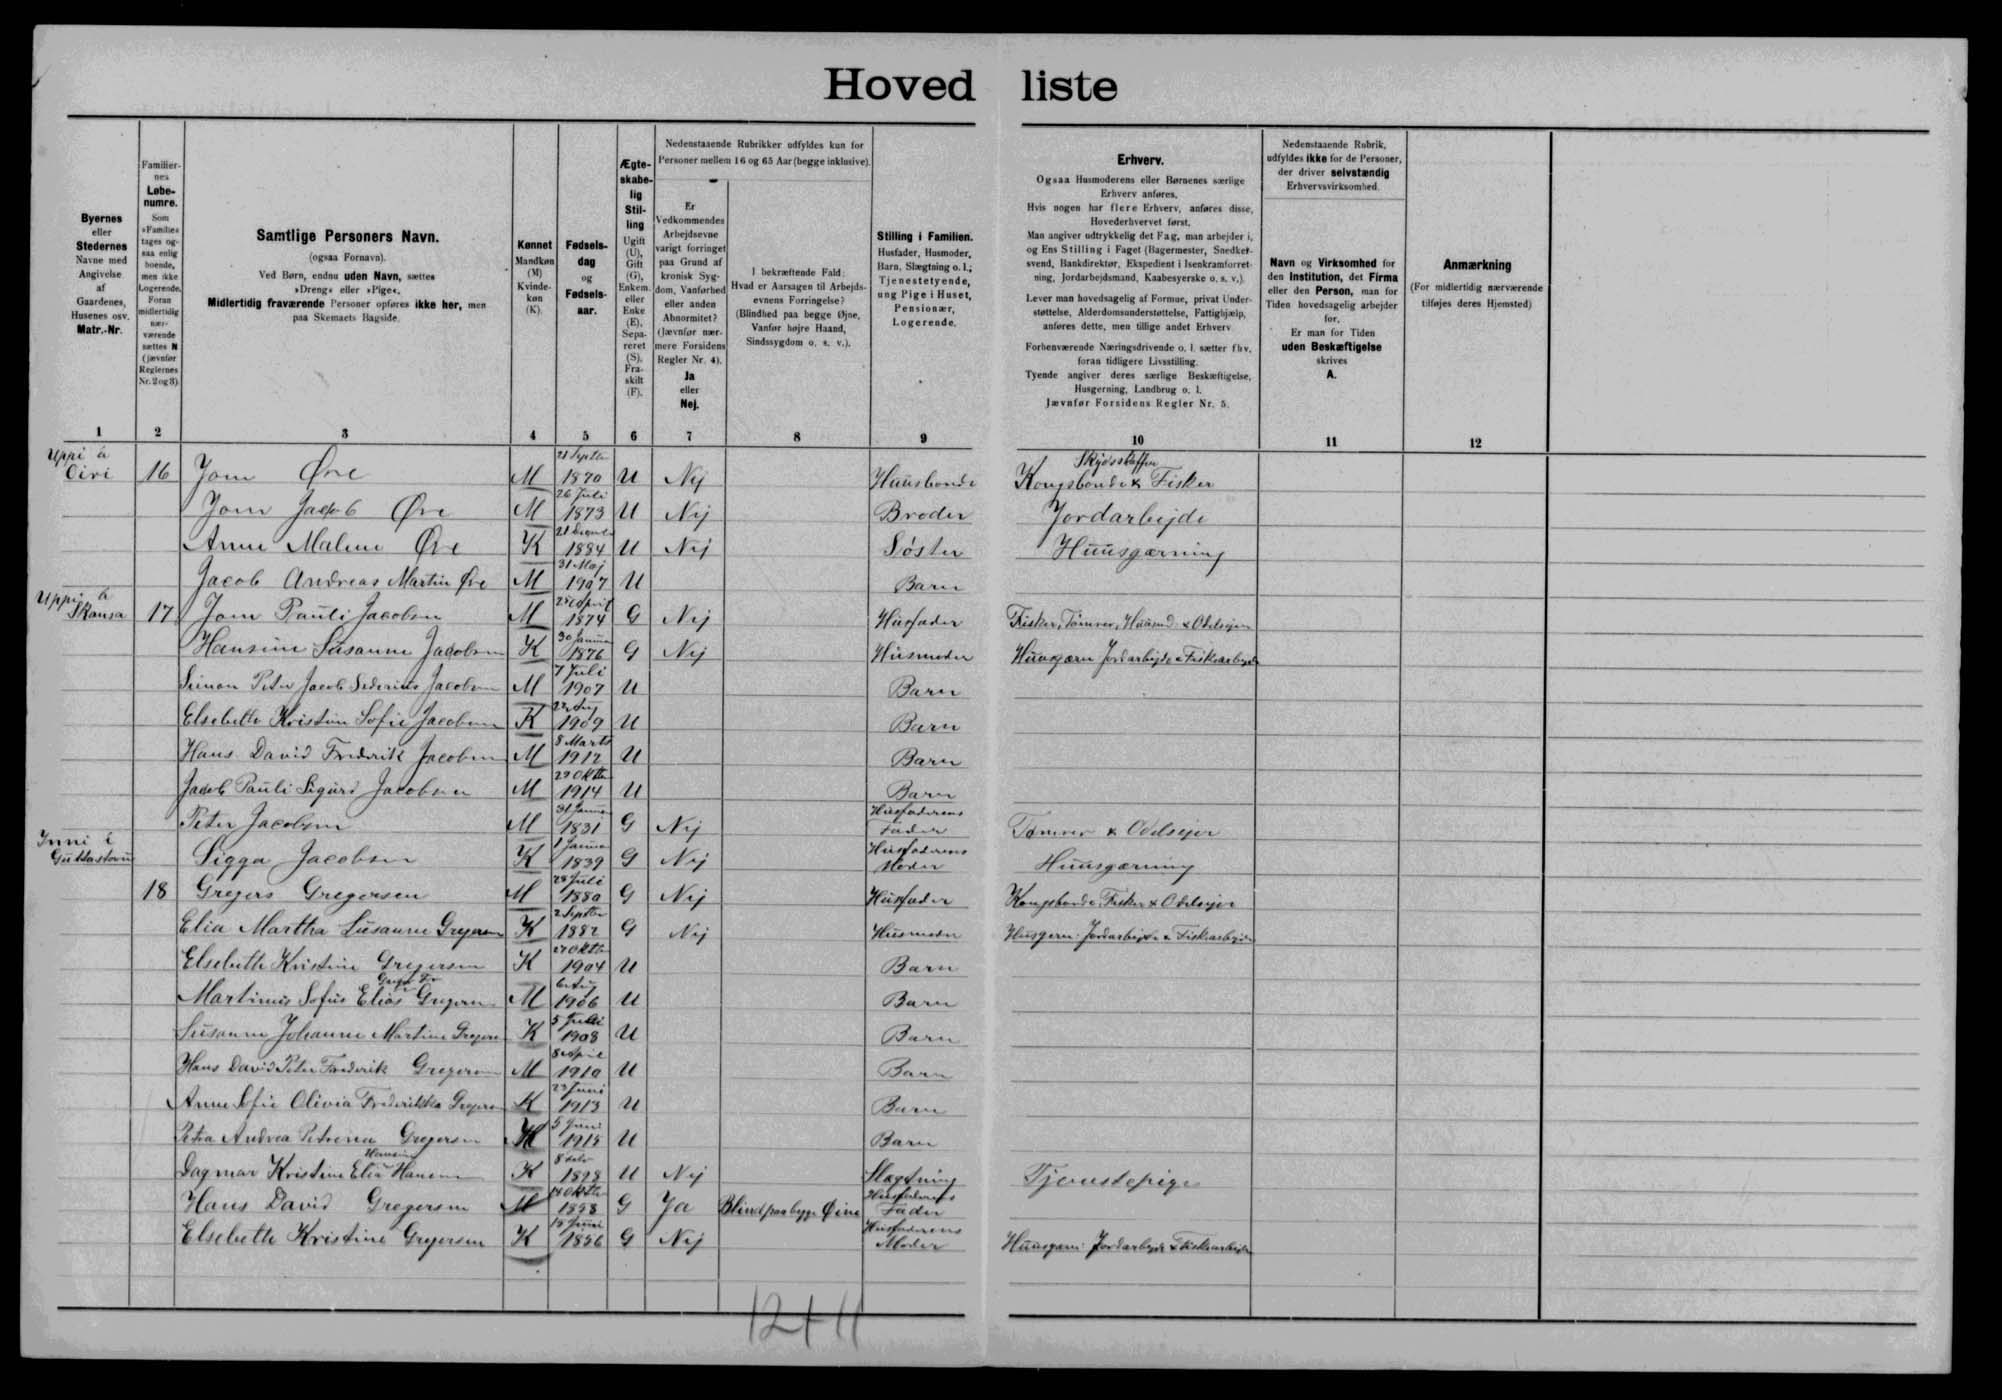 Hoved liste
Byernes
eller
Stedernes
Navne med
Angivelse
af
Gaardenes,
Husenes osv.
Matr.-Nr.
Familier-
nes
Løbe-
numre.
Som
»Familie«
tages og-
saa enlig
boende,
men ikke
Logerende.
Foran
midlertidig
nær-
værende
sættes N
(jævnfør
Reglernes
Nr. 2 og 3).
Samtlige Personers Navn.
(ogsaa Fornavn).
Ved Børn, endnu uden Navn, sættes
»Dreng« eller »Pige«.
Midlertidig fraværende Personer opføres ikke her, men
paa Skemaets Bagside.
Kønnet
Mandkøn
(M)
Kvinde-
køn
(K).
Fødsels-
dag
og
Fødsels-
aar.
Ægte-
skabe-
lig
Stil-
ling
Ugift
(U),
Gift
(G),
Enkem.
eller
Enke
(E),
Sepa-
reret
(S),
Fra-
skilt
(F).
Nedenstaaende Rubrikker udfyldes kun for
Personer mellem 16 og 65 Aar (begge inklusive).
Er
Vedkommendes
Arbejdsevne
varigt forringet
paa Grund af
kronisk Syg-
dom, Vanførhed
eller anden
Abnormitet?
(Jævnfør nær-
mere Forsidens
Regler Nr. 4).
Ja
eller
Nej.
I bekræftende Fald:
Hvad er Aarsagen til Arbejds-
evnens Forringelse?
(Blindhed paa begge Øjne,
Vanfør højre Haand,
Sindssygdom o. s. v.).
Stilling i Familien.
Husfader, Husmoder,
Barn, Slægtning o. l.;
Tjenestetyende,
ung Pige i Huset,
Pensionær,
Logerende.
Erhverv.
Ogsaa Husmoderens eller Børnenes særlige
Erhverv anføres.
Hvis nogen har flere Erhverv, anføres disse,
Hovederhvervet først.
Man angiver udtrykkelig det Fag, man arbejder i,
og Ens Stilling i Faget (Bagermester, Snedker-
svend, Bankdirektør, Ekspedient i Isenkramforret-
ning, Jordarbejdsmand, Kaabesyerske o. s. v.).
Lever man hovedsagelig af Formue, privat Under-
støttelse, Alderdomsunderstøttelse, Fattighjælp,
anføres dette, men tillige andet Erhverv
Forhenværende Næringsdrivende o. l. sætter fhv.
foran tidligere Livsstilling.
Tyende angiver deres særlige Beskæftigelse,
Husgerning, Landbrug o. l.
Jævnfør Forsidens Regler Nr. 5.
Nedenstaaende Rubrik,
udfyldes ikke for de Personer,
der driver selvstændig
Erhvervsvirksomhed.
Navn og Virksomhed for
den Institution, det Firma
eller den Person, man for
Tiden hovedsagelig arbejder
for.
Er man for Tiden
uden Beskæftigelse
skrives
A.
Anmærkning
(For midlertidig nærværende
tilføjes deres Hjemsted)
1 2 3 4 5 6 7 8 9 10 11 12
Uppi á 21 Septbr Skydsskaffer
Eiri 16 Jom Øre M 1870 U Nej Huusbonde Kongsbonde & Fisker
26 Juli
Jom Jacob Øre M 1873 U Nej Broder Jordarbejde
Anne Malene Øre K 1884 U Nej Søster Huusgærning
31 Maj
Jacob Andreas Martin Øre M 1907 U Barn
Uppi á April
Skansa 17 Jom Pauli Jacobsen M 1874 G Nej Husfader Fisker, Tømrer, & Odelsejer
30 Januar
Hansine Susanne Jacobsen K 1876 G Nej Husmoder Huusgærn Jordarbejde & Fiskearbejde
7 Juli
Simon Peter Jacob Jacobsen M 1907 U Barn
22 Aug
Elsebette Kristine Sofie Jacobsen K 1909 U Barn
8 Marts
Hans David Frederik Jacobsen M 1912 U Barn
29 Oktbr
Jacob Pauli Sigurd Jacobsen M 1914 U Barn
31 Januar Husfaderens
Peter Jacobsen M 1831 G Nej Fader Tømrer & Odelsejer
Inni í 1 Januar Husfaderens
Sigga Jacobsen K 1839 G Nej Moder Huusgærning
28 Juli
18 Gregers Gregersen M 1880 G Nej Husfader Kongsbonde, Fisker & Odelsejer
2 Septbr
Elia Martha Susanne Gregersen K 1882 G Nej Husmoder Husgern. Jordarbejde & Fiskearbejde
27 Oktbr
Elsebette Kristine Gregersen K 1904 U Barn
6 Aug
Martinus Sofus Elias Gregersen M 1906 U Barn
5 Juli
Susanne Johanne Martine Gregersen K 1908 U Barn
8 April
Hans David Peter Frederik Gregersen M 1910 U Barn
23 Juni
Anne Sofie Olivia Frederikka Gregersen K 1913 U Barn
5 Juni
Petra Andrea Petrine Gregersen K 1915 U Barn
Hansine
Dagmar Kristine Elia Hansen K 1898 U Nej Slægtning Tjenestepige
Oktbr Husfaderens
Hans David Gregersen M G Ja Blind paa begge Øine Fader
Husfaderens
Elsebette Kristine Gregersen K 1856 G Nej Moder Huusgærn. Jordarbejde & Fiskearbejde
12+11